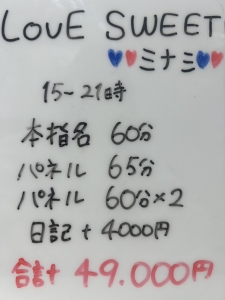 LOVE SWEET
💙❤ミナミ💙❤
15~21時
本指名 60分
パネル 65分
パネル 60分×2
日記 + 4000円
合計 49.000円